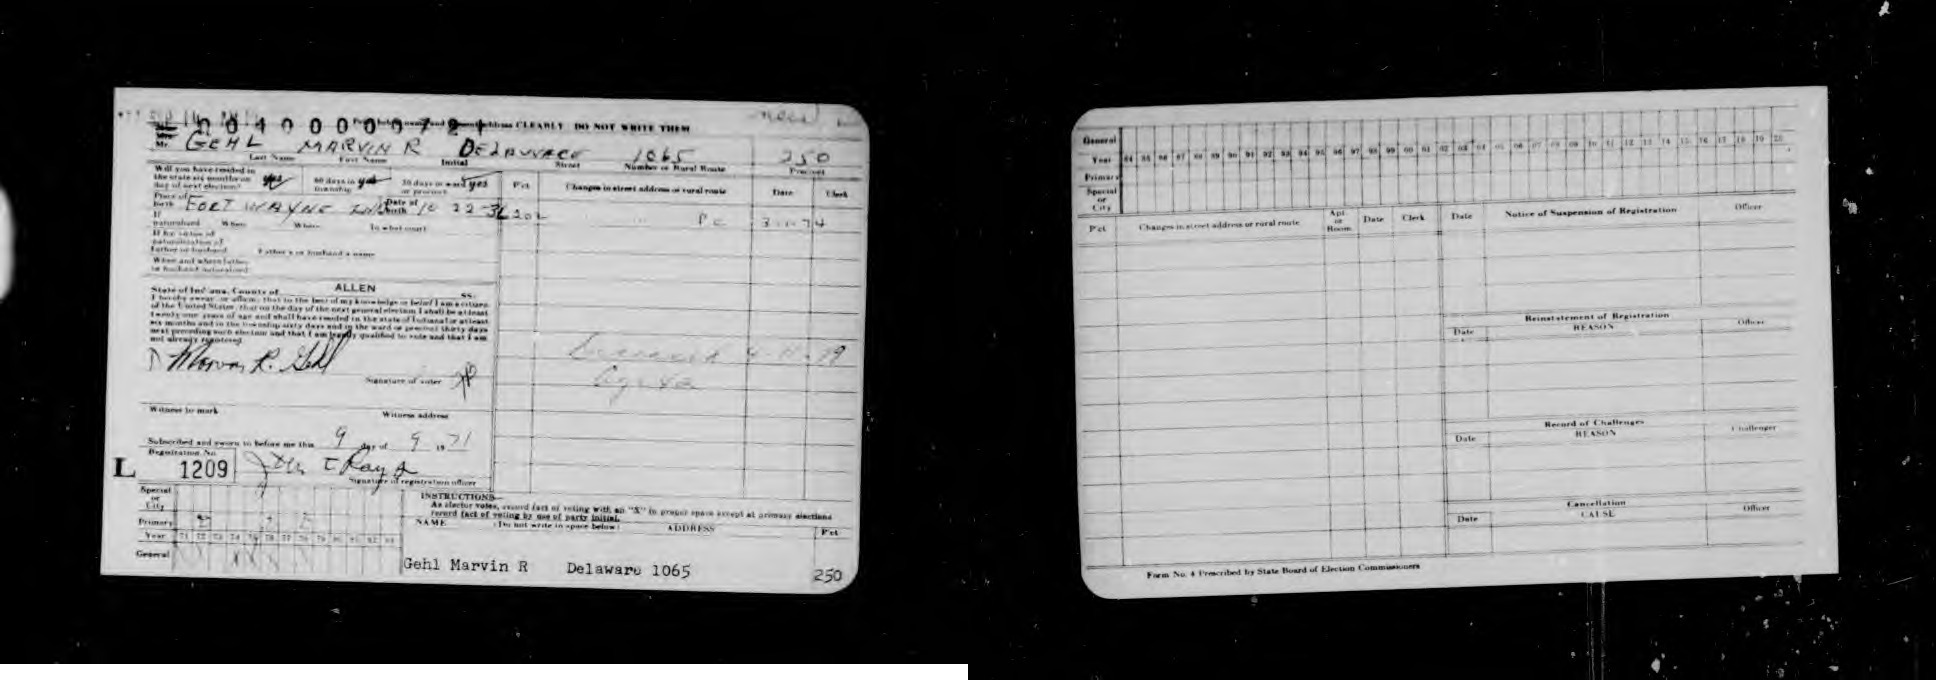 CLEARLY DO NOT WRITE THEM
Mr. GEHL MARVIN R DELAWARE 1065 250
Last Name First Name Initial Street Number or Rural Route Precinct
Will you have resided in the state six months on day of next election? yes 60 days in township yes 30 days in ward or precinct yes
Pct Changes in street address or rural route Date Clerk
Place of birth FORT WAYNE IND Date of birth 10 22-36
202 PC 3-1-74
If naturalized When Where To what court
If by virtue of naturalization of Father or husband Father's or husband's name
When and where father or husband naturalized
State of Indiana, County of ALLEN SS:
I hereby swear or affirm, that to the best of my knowledge or belief I am a citizen
of the United States, that on the day of the next general election I shall be at least
twenty-one years of age and shall have resided in the state of Indiana for at least
six months and in the township sixty days and in the ward or precinct thirty days
next preceding such election and that I am legally qualified to vote and that I am
not already registered.
Marvin R. Gehl
Signature of voter
4-11-79
Witness to mark Witness address
Subscribed and sworn to before me this 9 day of 9 1971
Registration No.
L 1209
Signature of registration officer
Special or City
Primary
Year 71 72 73 74 75 76 77 78 79 80 81 82 83
General
INSTRUCTIONS—
As elector votes, record fact of voting with an "X" in proper space except at primary elections
record fact of voting by use of party initial.
NAME (Do not write in space below) ADDRESS Pct
Gehl Marvin R Delaware 1065 250
General
Year 84 85 86 87 88 89 90 91 92 93 94 95 96 97 98 99 00 01 02 03 04 05 06 07 08 09 10 11 12 13 14 15 16 17 18 19 20
Primary
Special or City
Pct Changes in street address or rural route Apt. or Room Date Clerk
Date Notice of Suspension of Registration Officer
Reinstatement of Registration
Date REASON Officer
Record of Challenges
Date REASON Challenger
Cancellation
Date CAUSE Officer
Form No. 4 Prescribed by State Board of Election Commissioners